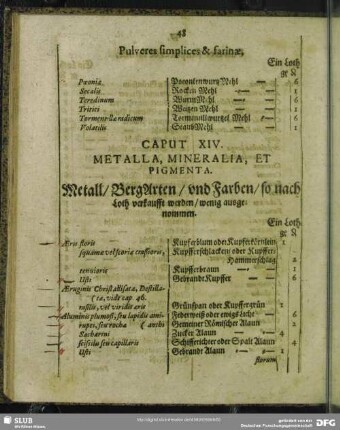 48
Pulveres simplices & farinæ,
Ein Loth
gr ₰
Pæoniæ Poeonienwurtz Mehl 6
Secalis Rocken Mehl 1
Teredinum Wurm Mehl 6
Tritici Weitzen Mehl 1
Tormentillæ radicum Tormentillwurtzel Mehl 6
Volatilis Staub Mehl 1
CAPUT XIV.
METALLA, MINERALIA, ET
PIGMENTA.
Metall / BergArten / vnd Farben / so nach
Loth verkaufft werden / wenig ausge-
nommen.
Ein Loth
gr ₰
Æris floris Kupferblum oder Kupfferkörnlein 1
squamæ vel scoria crassioris, Kupfferschlacken oder Kupffer-
Hammerschlag 2
tenuioris Kupfferbraun 1
Usti Gebrandt Kupffer 6
Æruginis Christallisatæ, Destilla-
tæ, vide cap 46.
rasilis, vel viridis æris Grünspan oder Kupffergrün 1
Aluminis plumosi, seu lapidis ami- Federweiß oder ewigs Liecht 6
rupei, seu rochæ (anthi Gemeiner Römischer Alaun 2
Sacharini Zucker Alaun 4
scissilis seu capillaris Schifferichter oder Spalt Alaun 4
Usti Gebrandt Alaun 1
florum
SLUB
DFG